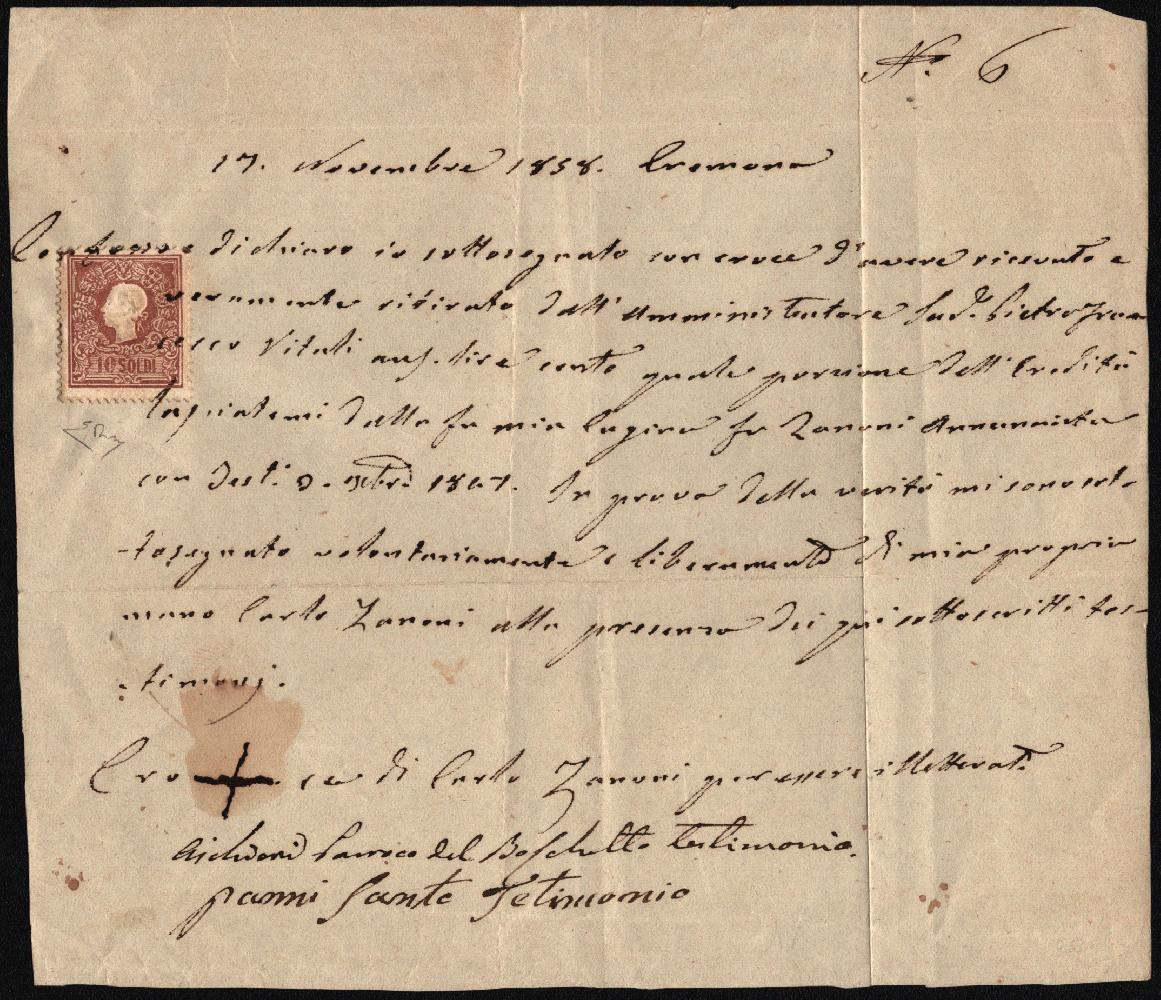 N.° 6
17. Novembre 1858. Cremona
Confesso e dichiaro io sottosegnato con croce d'avere ricevuto e
veramente ritirato dall' Amministratore Sud.° Pietro Fran
cesco Vitali aus. lire cento quale porzione dell'Eredità
lasciatemi dalla fu mia Zanoni Annunciata
con Test. 1847. In prova della verità mi sono sot-
-tosegnato volontariamente e liberamente di mia propria
mano Carlo Zanoni alla presenza dei qui sottoscritti tes-
-timonj.
Cro + ce di Carlo Zanoni per essere illetterato
Parroco del Boschetto testimonio.
Panni Sante Tetimonio
10 SOLDI